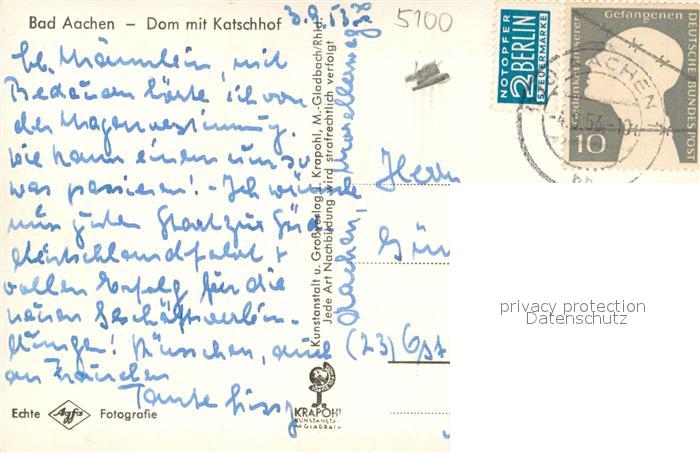 3.9.53
5100
Bad Aachen – Dom mit Katschhof
lb. Männlein, mit
Bedauern hörte ich von
der Magenverstimmung.
Wie kann einem nur so
was passieren! – Ich wünsche
nun guten Start zur
Deutschlandfahrt +
vollen Erfolg für die
neuen Geschäftsverbin-
dungen! Münschen, auch
an Frauchen
Tante Sissy
Echte Agfa Fotografie
Kunstanstalt u. Großverlag J. Krapohl, M.-Gladbach/Rhld.
Jede Art Nachbildung wird strafrechtlich verfolgt
Aachen,
KRAPOHL
KUNSTANSTALT
M. GLADBACH
Herrn
(23)
NOTOPFER
2 BERLIN
STEUERMARKE
Gedenket unserer Gefangenen
DEUTSCHE BUNDESPOST
10
AACHEN 1
-4.9.53.-10
privacy protection
Datenschutz